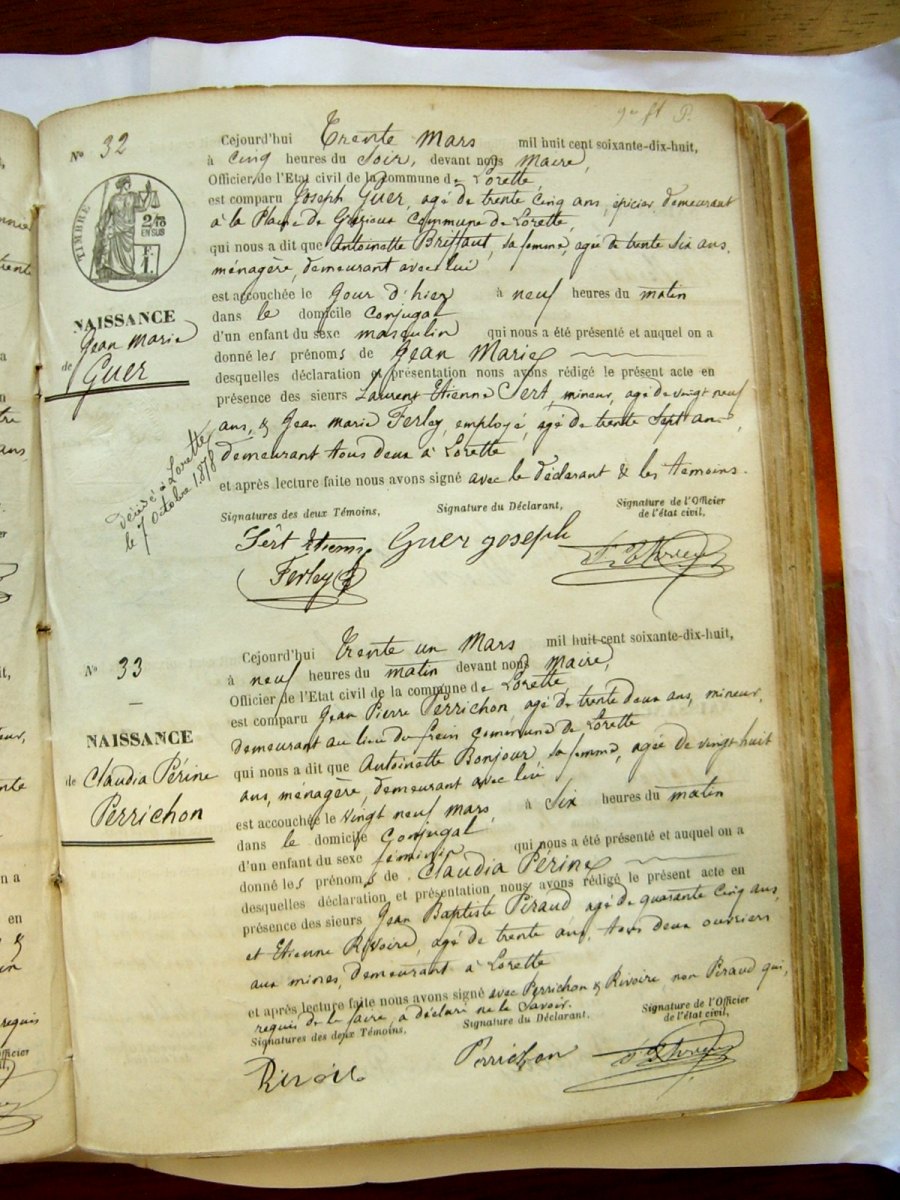 Nº 32
TIMBRE
2/10
EN SUS
NAISSANCE
de Jean Marie
Guer
Décédé à Lorette
le 7 octobre 1878
Cejourd'hui Trente Mars mil huit cent soixante-dix-huit,
à cinq heures du Soir, devant nous Maire,
Officier de l'Etat civil de la commune de Lorette,
est comparu Joseph Guer, agé de trente cinq ans, épicier demeurant
à la Plaine de Commune de Lorette,
qui nous a dit que Antoinette Briffaut, sa femme, agée de trente six ans,
ménagère, demeurant avec lui
est accouchée le jour d'hier à neuf heures du matin
dans le domicile conjugal
d'un enfant du sexe masculin qui nous a été présenté et auquel on a
donné les prénoms de Jean Marie
desquelles déclaration et présentation nous avons rédigé le présent acte en
présence des sieurs Laurent Etienne Sert, mineur, agé de vingt neuf
ans, & Jean Marie Ferley, employé, agé de trente Sept ans
demeurant tous deux à Lorette
et après lecture faite nous avons signé avec le déclarant & les témoins.
Signatures des deux Témoins, Signature du Déclarant, Signature de l'Officier
de l'état civil,
Sert Etienne Guer joseph
Ferley
Nº 33
NAISSANCE
de Claudia Périne
Perrichon
Cejourd'hui Trente un Mars mil huit cent soixante-dix-huit,
à neuf heures du matin devant nous Maire,
Officier de l'Etat civil de la commune de Lorette
est comparu Jean Pierre Perrichon agé de trente deux ans, mineur,
demeurant au lieu du commune de Lorette
qui nous a dit que Antoinette Bonjour sa femme, agée de vingt huit
ans, ménagère, demeurant avec lui
est accouchée le vingt neuf mars, à Six heures du matin
dans le domicile conjugal
d'un enfant du sexe féminin qui nous a été présenté et auquel on a
donné les prénoms de Claudia Périne
desquelles déclaration et présentation nous avons rédigé le présent acte en
présence des sieurs Jean Baptiste Péraud, agé de quarante cinq ans,
et Etienne Rivoire, agé de trente ans, tous deux ouvriers
aux mines, demeurant à Lorette
et après lecture faite nous avons signé avec Perrichon & Rivoire, non Péraud qui,
requis de le faire, a déclaré ne le Savoir.
Signatures des deux Témoins, Signature du Déclarant. Signature de l'Officier
de l'état civil,
Rivoire Perrichon